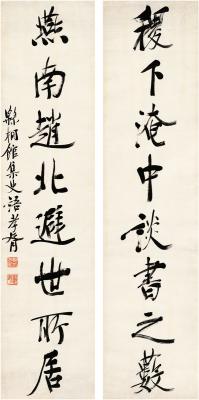 稷下淹中談書之藪
燕南趙北避世所居
緜桐館集史語孝胥